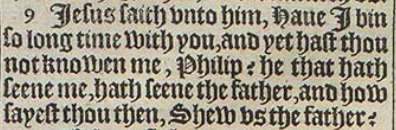 9 Jesus saith vnto him, Haue I bin
so long time with you, and yet hast thou
not knowen me, Philip? he that hath
seene me, hath seene the father, and how
sayest thou then, Shew vs the father?